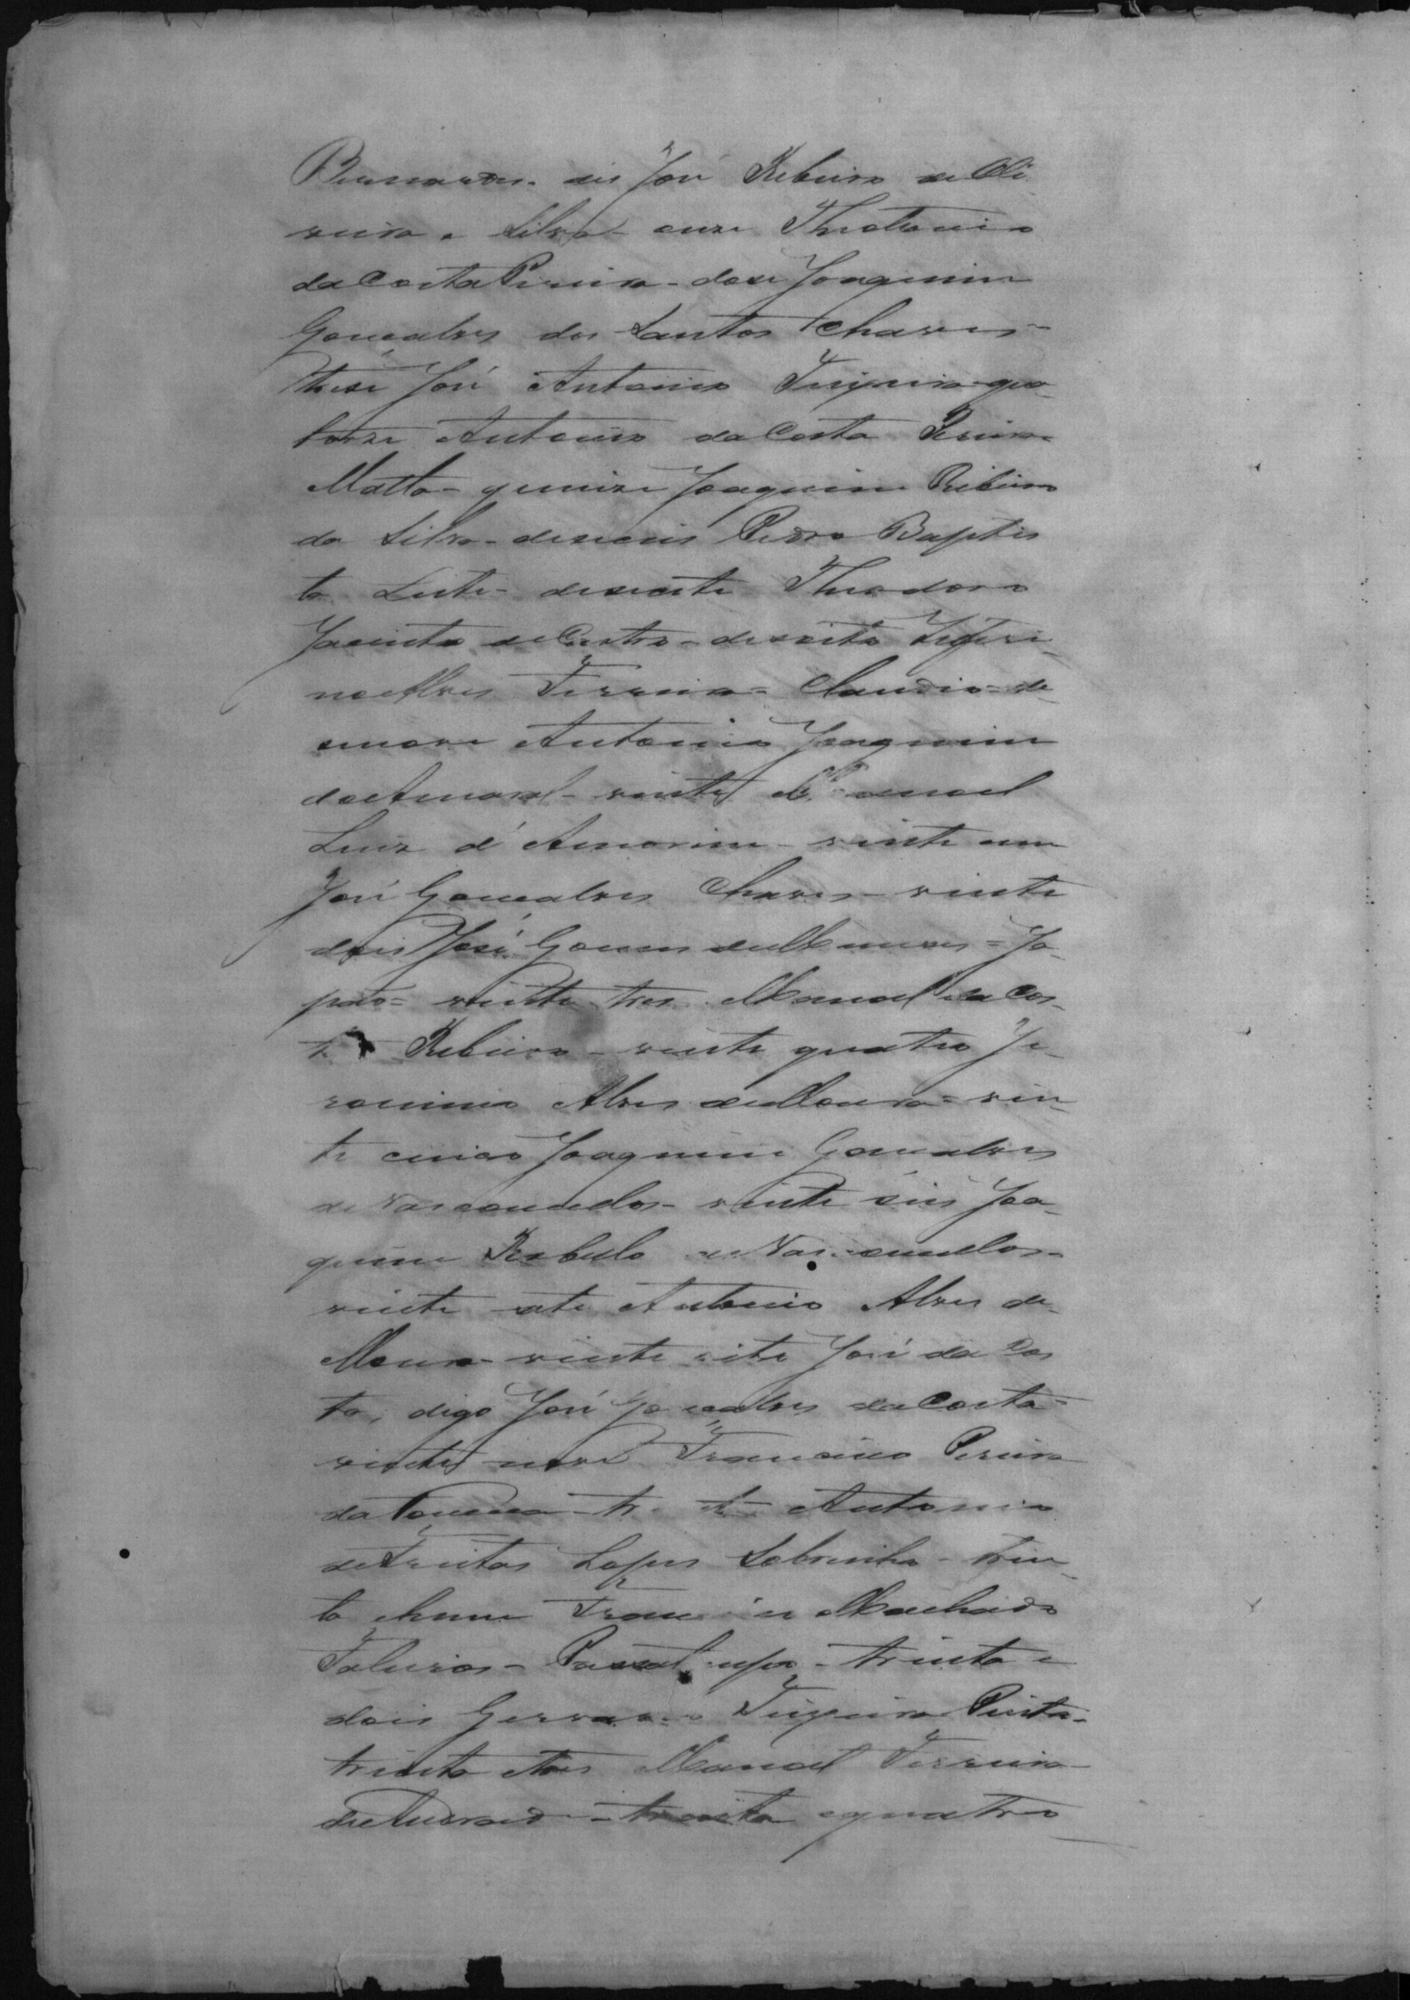 Bernardes- dis José Ribeiro de Oli
veira e Silva- onze Theotonio
da Costa Pereira- dose Joaquim
Gonçalves dos Santos Chaves-
trese José Antonio Teixeira- qua-
torze Antonio da Costa Pereira
Matto- quinze Joaquim Ribeiro
da Silva- deseseis Pedro Baptis
ta Leite- desesete Theodoro
Jacinto de Castro- desoito Zeferi-
no Alves Ferreira= Claudio= de-
senove Antonio Joaquim
do Amaral- vinte Manoel
Luiz d'Amorim- vinte um
José Gonçalves Chaves- vinte
dois José Gomes de Menezes= Ja-
pão= vinte tres Manoel da Cos-
ta Ribeiro- vinte quatro Je-
ronimo Alves de Moura= vin-
te cinco Joaquim Gonçalves
de Vasconcellos- vinte seis Joa-
quim Rabello de Vasconcellos-
vinte sete Antonio Alves de
Moura- vinte oito José da Cos
ta, digo José Gonçalves da Costa-
vinte nove Francisco Pereira
da Fonseca- trinta Antonio
de Freitas Lopes Sobrinho- trin-
ta e hum Francisco Machado
- trinta e
dois Teixeira Pinto-
trinta e tres Manoel Ferreira
de Azevedo- trinta e quatro